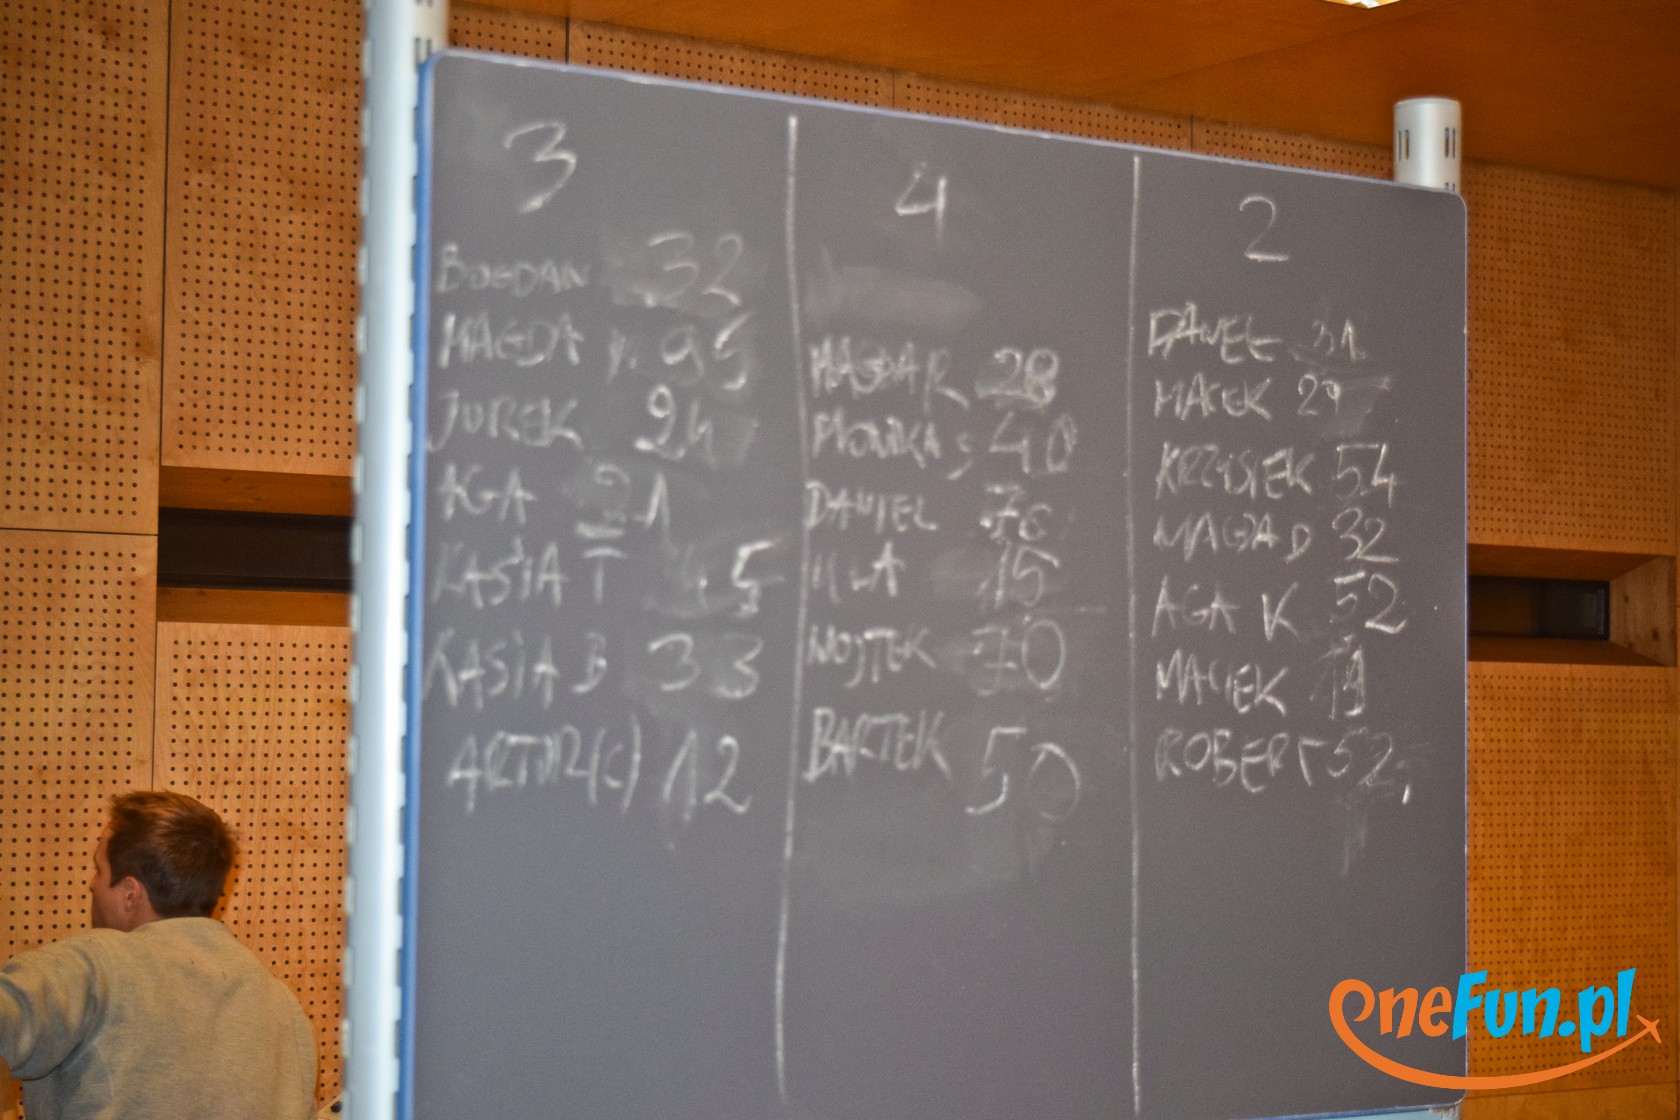 3
BOGDAN 32
MAGDA P. 95
JUREK 24
AGA 21
KASIA T 45
KASIA B 33
ARTUR(C) 12
4
MAGDA R 28
MONIKA S 40
DANIEL
ULA 15
WOJTEK 70
BARTEK 50
2
PAWEŁ 31
MACIEK 29
KRZYSIEK 54
MAGDA D 32
AGA K 52
MACIEK 19
ROBERT 52
OneFun.pl